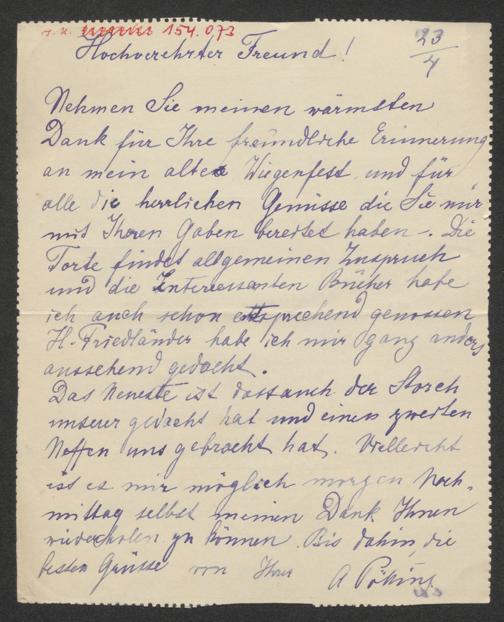 154.073
Hochverehrter Freund!
23/4
Nehmen Sie meinen wärmsten
Dank für Ihre freundliche Erinnerung
an mein altes Wiegenfest und für
alle die herrlichen Genüsse die Sie mir
mit Ihren Gaben bereitet haben. Die
Torte findet allgemeinen Zuspruch
und die Interessanten Bücher habe
ich auch schon entsprechend genossen
H. Friedländer habe ich mir ganz anders
aussehend gedacht.
Das Neueste ist dass auch der Storch
unserer gedacht hat und einen zweiten
Neffen uns gebracht hat. Vielleicht
ist es mir möglich morgen Nach-
mittag selbst meinen Dank Ihnen
wiederholen zu können. Bis dahin die
besten Grüsse von Ihrer
A